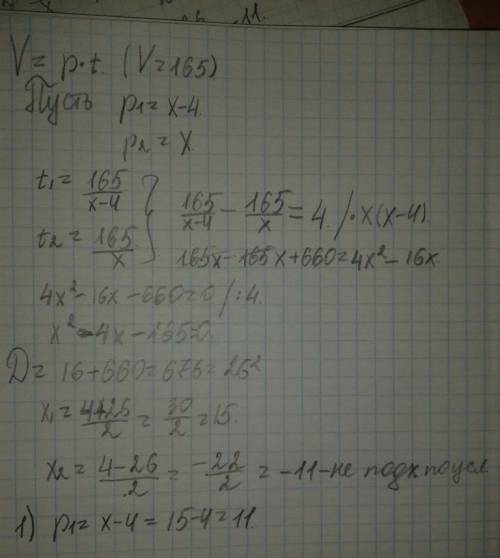 V = p·t. (V=165)
Пусть p₁ = x-4.
p₂ = x
t₁ = 165/(x-4)
t₂ = 165/x } 165/(x-4) - 165/x = 4 /·x(x-4)
165x - 165x + 660 = 4x² - 16x.
4x² - 16x - 660 = 0 /:4.
x² - 4x - 165 = 0.
D = 16 + 660 = 676 = 26²
x₁ = (4+26)/2 = 30/2 = 15.
x₂ = (4-26)/2 = -22/2 = -11 - не подх по усл
1) p₁ = x-4 = 15-4 = 11.